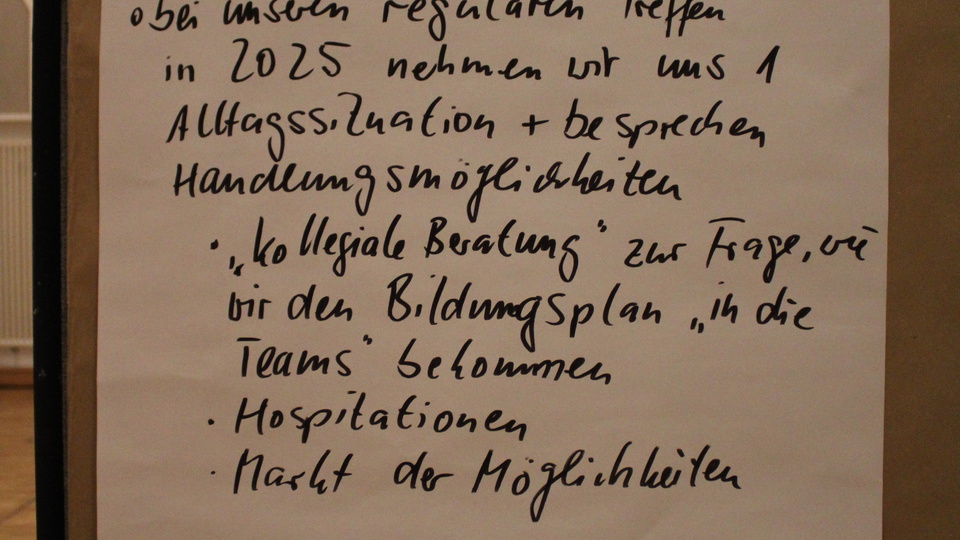 o bei unseren regulären Treffen
in 2025 nehmen wir uns 1
Alltagssituation + besprechen
Handlungsmöglichkeiten
· „kollegiale Beratung" zur Frage, wie
wir den Bildungsplan „in die
Teams" bekommen
· Hospitationen
· Markt der Möglichkeiten